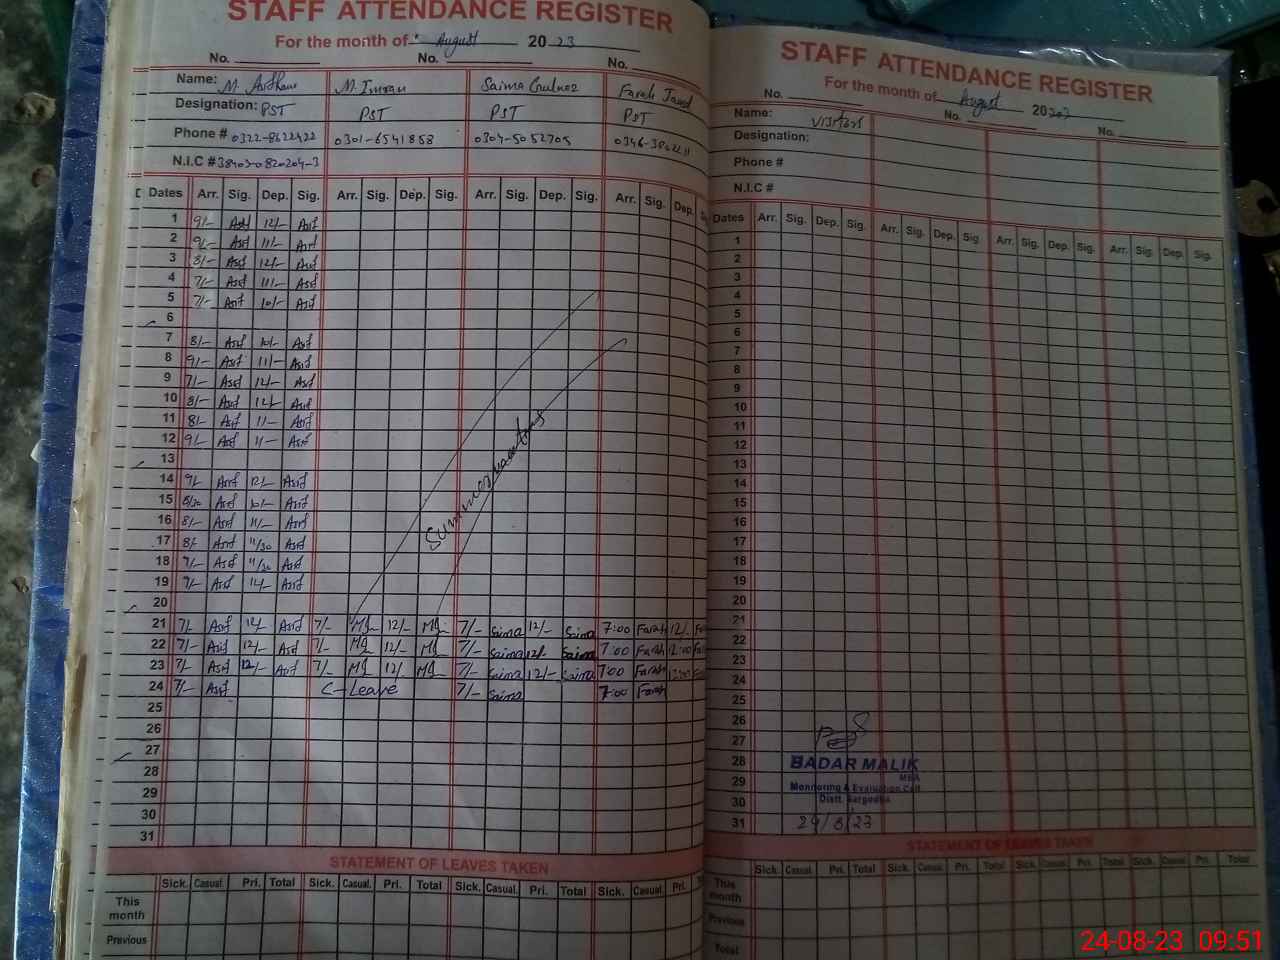 STAFF ATTENDANCE REGISTER
For the month of August 2023
No. No. No.
Name: M. M. Imran Saima Gulnaz Farah
Designation: PST PST PST PST
Phone # 0322-8622422 0301-6541858 0304-5052705 0346-
N.I.C # 38403-0820204-3
Dates Arr. Sig. Dep. Sig. Arr. Sig. Dep. Sig. Arr. Sig. Dep. Sig. Arr. Sig. Dep.
1 9/- Asif 12/- Asif
2 9/- Asif 11/- Asif
3 8/- Asif 12/- Asif
4 7/- Asif 11/- Asif
5 7/- Asif 10/- Asif
6
7 8/- Asif 10/- Asif
8 9/- Asif 11/- Asif
9 7/- Asif 12/- Asif
10 8/- Asif 12/- Asif
11 8/- Asif 11/- Asif
12 9/- Asif 11/- Asif
13
Summer vacations
14 9/- Asif 12/- Asif
15 8/30 Asif 10/- Asif
16 8/- Asif 11/- Asif
17 8/- Asif 11/30 Asif
18 9/- Asif 11/30 Asif
19 9/- Asif 12/- Asif
20
21 7/- Asif 12/- Asif 7/- 12/- 7/- Saima 12/- Saima 7:00 Farah 12/-
22 7/- Asif 12/- Asif 7/- 12/- 7/- Saima 12/- Saima 7:00 Farah 12:00
23 7/- Asif 12/- Asif 7/- 12/- 7/- Saima 12/- Saima 7:00 Farah 12:00
24 7/- Asif C-Leave 7/- Saima 7:00 Farah
25
26
27
28
29
30
31
STATEMENT OF LEAVES TAKEN
Sick. Casual. Pri. Total Sick. Casual. Pri. Total Sick. Casual. Pri. Total Sick. Casual. Pri.
This month
Previous
STAFF ATTENDANCE REGISTER
For the month of August 20
No. No. No.
Name: Visitors
Designation:
Phone #
N.I.C #
Dates Arr. Sig. Dep. Sig. Arr. Sig. Dep. Sig. Arr. Sig. Dep. Sig. Arr. Sig. Dep. Sig.
1
2
3
4
5
6
7
8
9
10
11
12
13
14
15
16
17
18
19
20
21
22
23
24
25
26
27
28
29
30
31
BADAR MALIK
MEA
Monitoring & Evaluation Cell
Distt. Sargodha
24/8/23
STATEMENT OF LEAVES TAKEN
Sick. Casual. Pri. Total Sick. Casual. Pri. Total Sick. Casual. Pri. Total
This month
Previous
Total
24-08-23 09:51